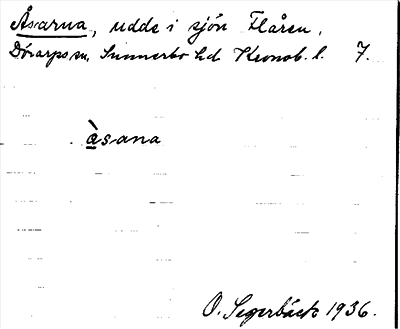 Åsarna, udde i sjön Flåren,
Dörarps sn, Sunnerbo hd Kronob. l. 7.
àsana
O. Segerbäck 1936.